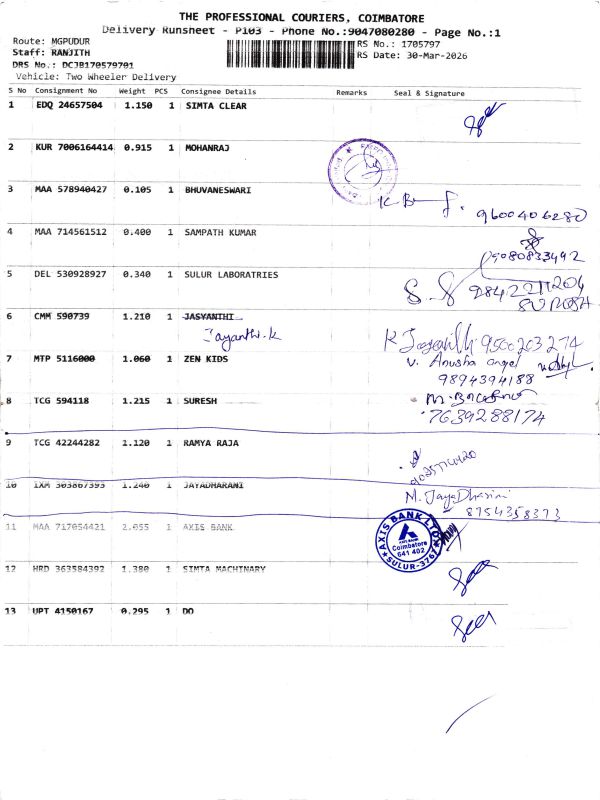 THE PROFESSIONAL COURIERS, COIMBATORE
Delivery Runsheet - P103 - Phone No.:9047080280 - Page No.:1
Route: MGPUDUR
RS No.: 1705797
Staff: RANJITH
RS Date: 30-Mar-2026
DRS No.: DCJB170579701
Vehicle: Two Wheeler Delivery
S No Consignment No Weight PCS Consignee Details Remarks Seal & Signature
1 EDQ 24657504 1.150 1 SIMTA CLEAR
2 KUR 7006164414 0.915 1 MOHANRAJ
3 MAA 578940427 0.105 1 BHUVANESWARI
9600406280
4 MAA 714561512 0.400 1 SAMPATH KUMAR
9080833492
5 DEL 530928927 0.340 1 SULUR LABORATRIES
9842221204
SURESH
6 CMM 590739 1.210 1 JASYANTHI
Jayanthi.K
9500203274
7 MTP 5116000 1.060 1 ZEN KIDS
V. Anusha angel
9894394188
8 TCG 594118 1.215 1 SURESH
7639288174
9 TCG 42244282 1.120 1 RAMYA RAJA
10 IXM 303867393 1.240 1 JAYADHARANI
M. JayaDharini
8754358373
11 MAA 717054421 2.055 1 AXIS BANK
AXIS BANK LTD
AXIS BANK
Coimbatore
641 402
SULUR-3767
12 HRD 363584392 1.380 1 SIMTA MACHINARY
13 UPT 4150167 0.295 1 DO